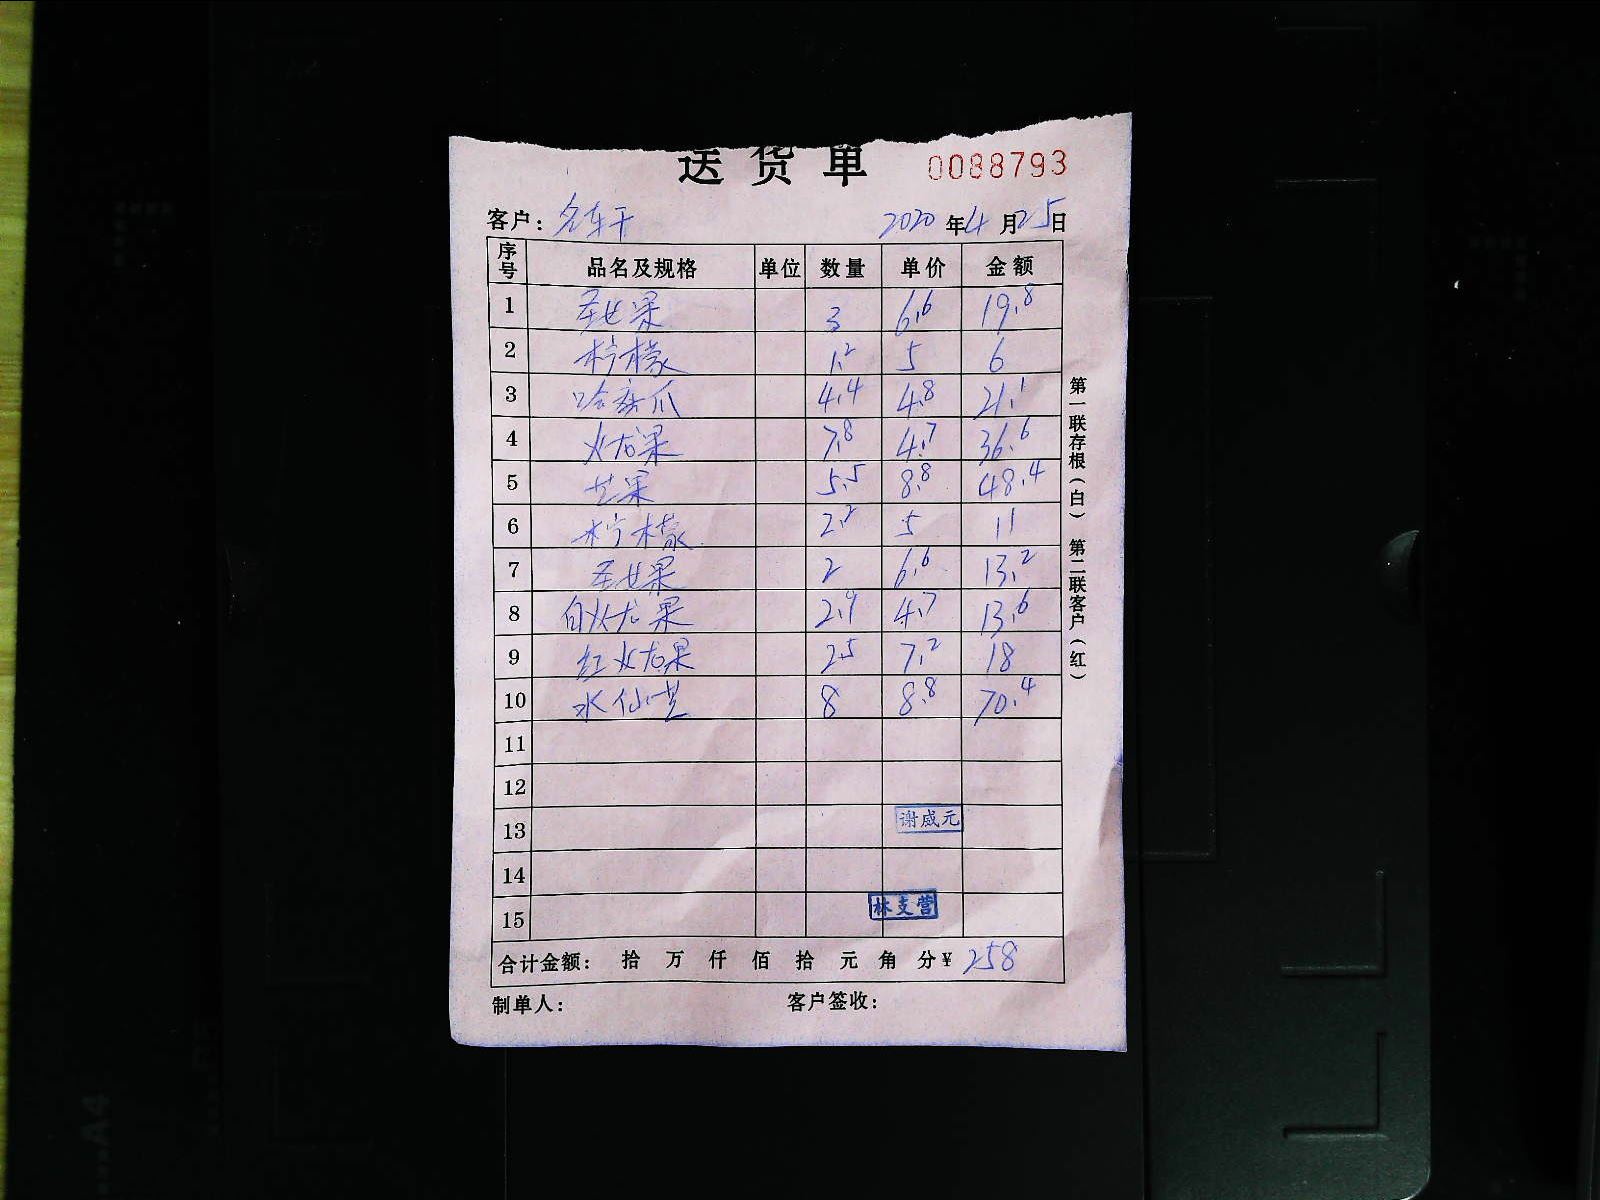 送货单 0088793
客户: 2020 年 4 月 25 日
序号 品名及规格 单位 数量 单价 金额
1 圣女果 3 6.6 19.8
2 柠檬 1.2 5 6
3 哈蜜瓜 4.4 4.8 21.1
4 火龙果 7.8 4.7 36.6
5 芒果 5.5 8.8 48.4
6 柠檬 2.2 5 11
7 圣女果 2 6.6 13.2
8 白火龙果 2.9 4.7 13.6
9 红火龙果 2.5 7.2 18
10 水仙芒 8 8.8 70.4
11
12
13 谢威元
14
15 林支营
合计金额: 拾 万 仟 佰 拾 元 角 分¥ 258
制单人: 客户签收:
第一联存根(白) 第二联客户(红)
A4